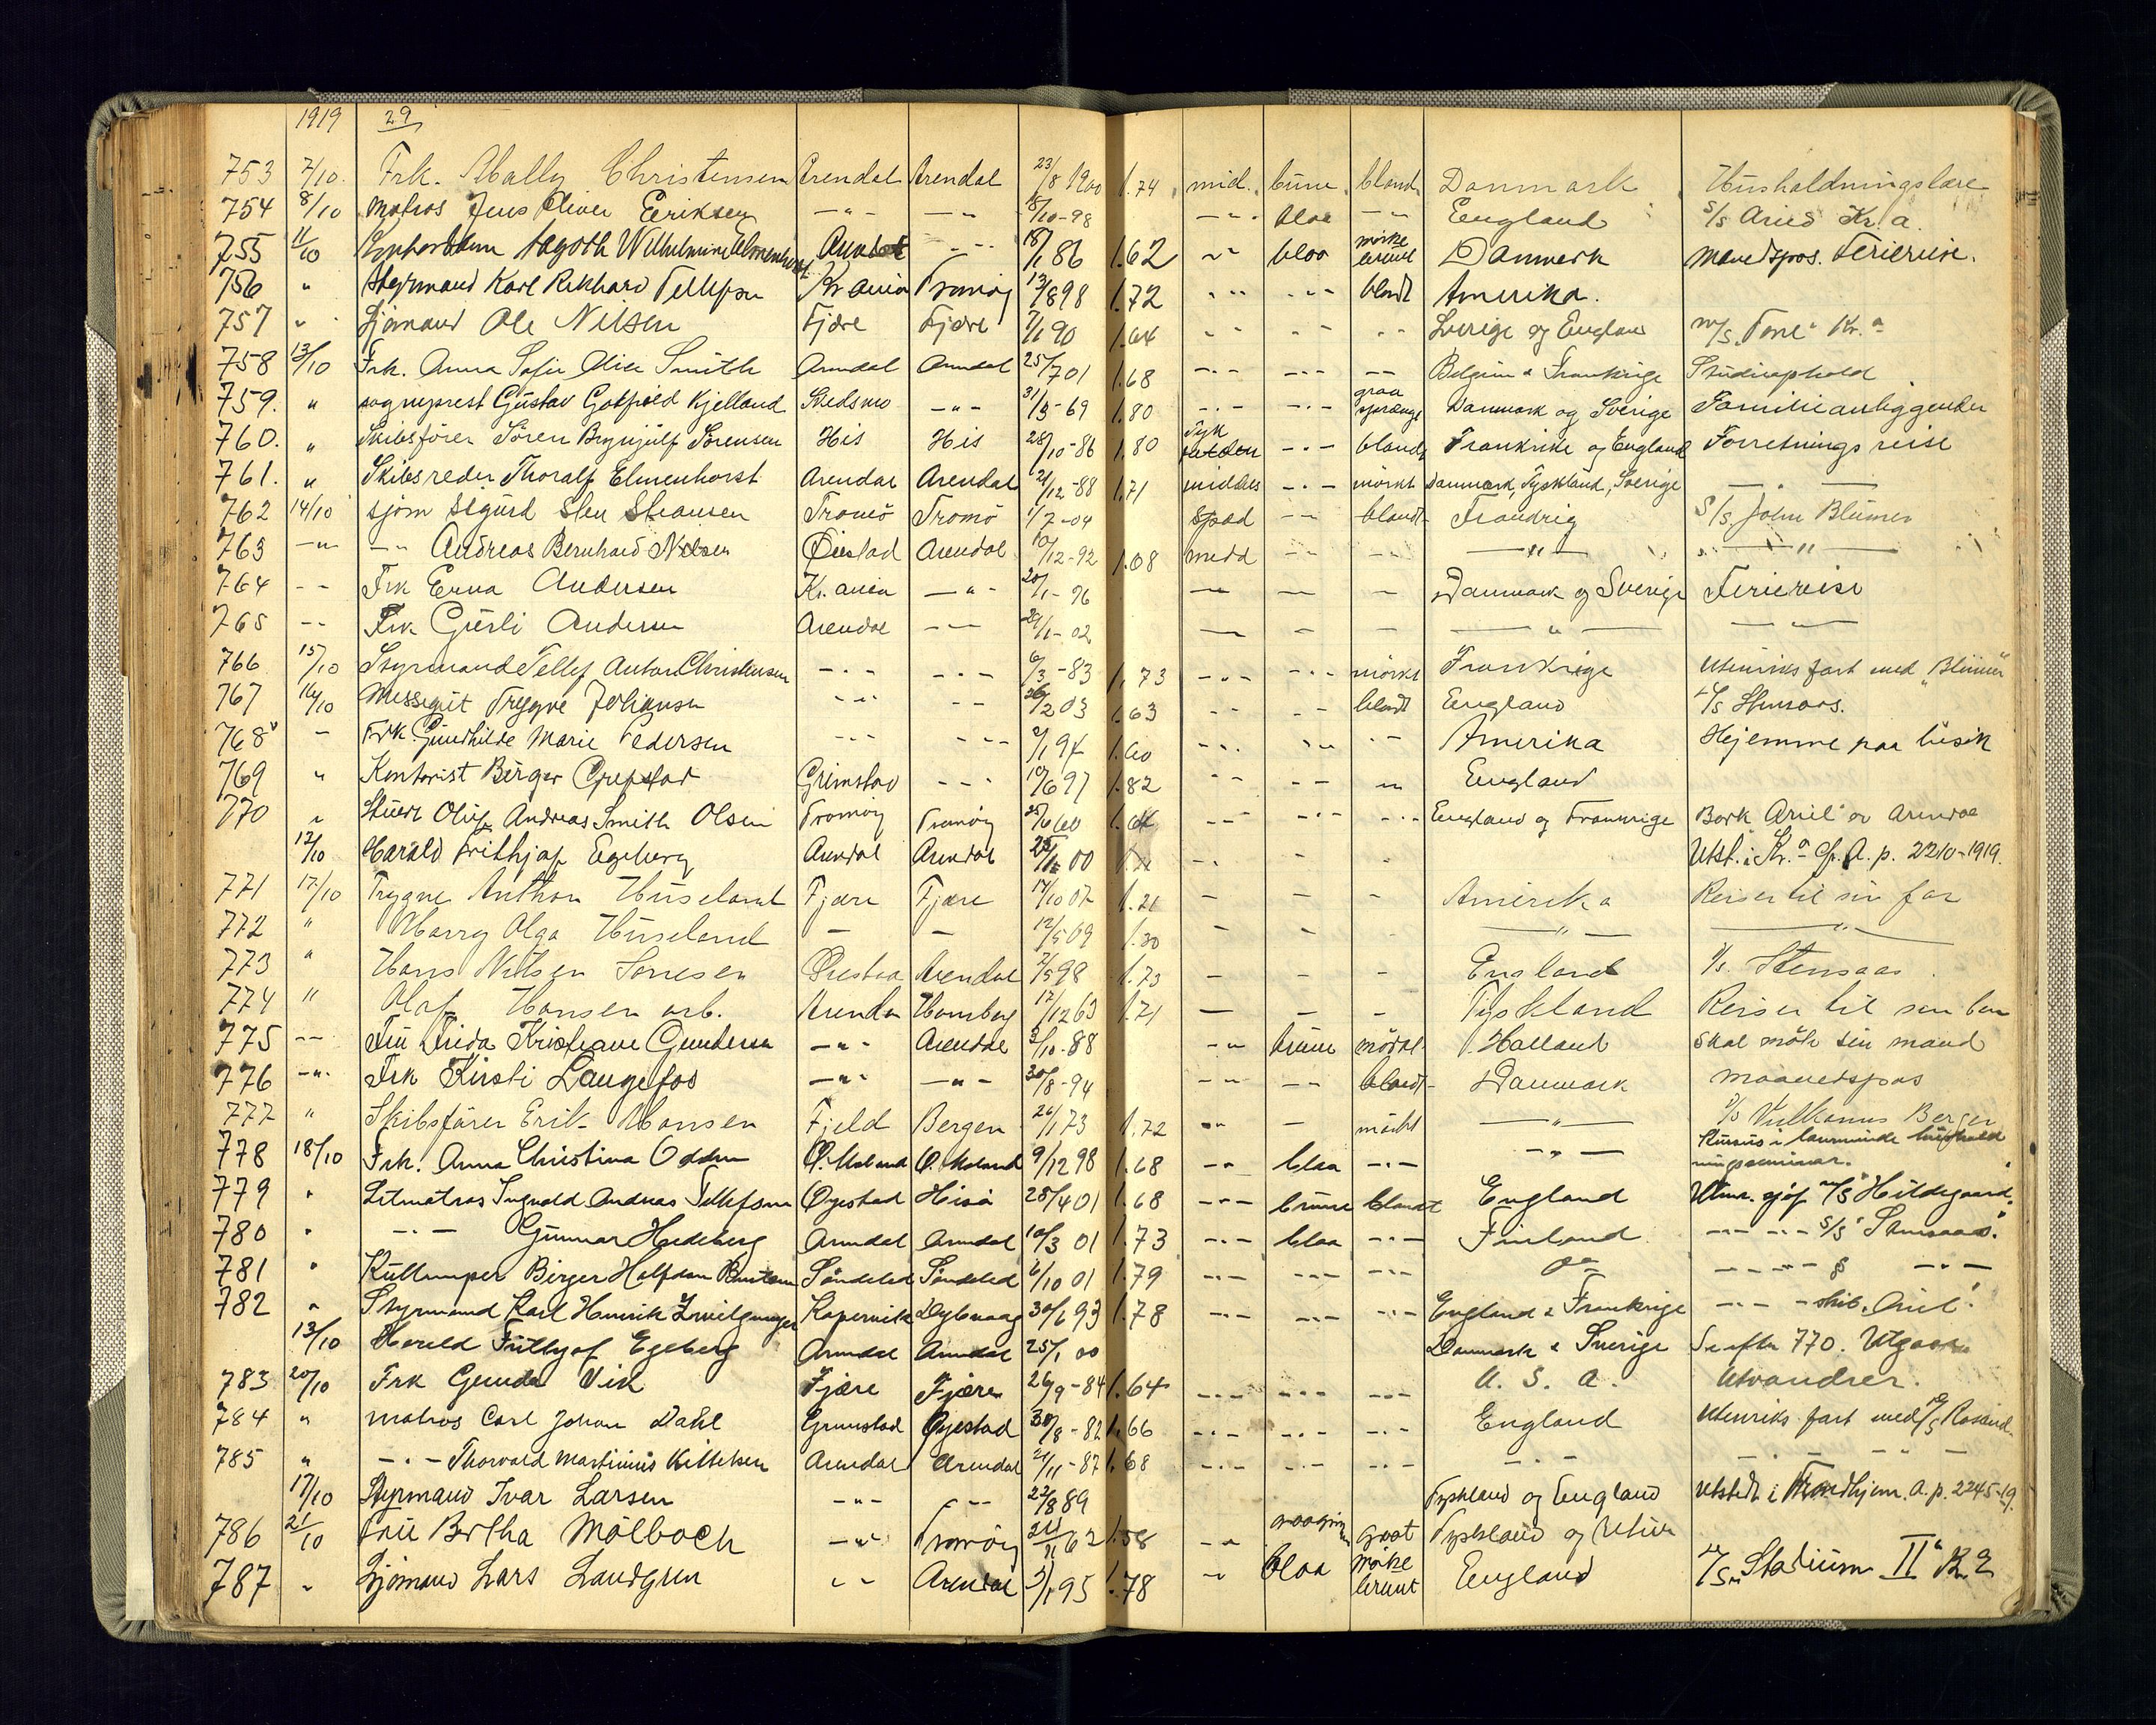 1919 29
753 7/10. Frk. Mally Christensen Arendal Arendal 23/8 1900 1.74 mid. brune blond. Danmark Husholdningslære
754 8/10 Matros Jens Oliver Eriksen -"- -"- /10-98 -"- blaa -"- England S/S Aries Kr.a.
755 11/10 Wilhelmine Elmenhorst Arendal -"- 18/1 86 1.62 -"- blaa mörke brunt Danmark Maanedspas. Feriereise.
756 " Styrmand Karl Rikhard Tellefsen Kr.ania Tromöy 13/8 98 1.72 -"- -"- blondt Amerika.
757 " Sjömand Ole Nilsen Fjære Fjære 7/1 90 1.64 " " " Sverige og England M/S. "Tore" Kr.a
758 13/10 Frk. Anna Sofie Alice Smith Arendal Arendal 25/7 01 1.68 -"- -"- -- Belgien & Frankrige Studieophold
759. " sogneprest Gustav Gotfried Kjelland Skedsmo -"- 31/3-69 1.80 -"- -"- graa sprængt Danmark og Sverige Familieanliggender
760. " Skibsförer Sören Brynjulf Sörensen His His 28/10-86 1.80 Tyk -"- blondt Frankrike og England Forretningsreise
761. " Skibsreder Thoralf Elmenhorst Arendal Arendal 21/12-88 1.71 middels -"- mörkt Danmark, Tyskland, Sverige — " —
762 14/10 sjöm Sigurd Tromö Tromö 1/7-04 spæd -- blondt Frankrig S/S. John Blumer
763 -"- -"- Andreas Bernhard Nilsen Öiestad Arendal 10/12-92 1.68 midd -- -- —"— —"—
764 -- Frk Erna Andersen Kr.ania -"- 20/1-96 — — — Danmark og Sverige Feriereise
765 -- Frk. Gusli Andersen Arendal -- 29/1-02 — — — — " — — " —
766 15/10 Styrmand Tellef Anton Christensen -"- -"- 6/3-83 1.73 -"- -"- mörkt Frankrige Utenriks fart med "Blümer"
767 16/10 Messegut Trygve Johansen -"- -- 26/2 03 1.63 -- -- blondt England S/S Stensaas.
768 - Frk. Gundhilde Marie Pedersen -"- -"- 9/1 94 1.60 -"- -"- -"- Amerika Hjemme paa besök
769 " Kontorist Birger Grefstad Grimstad -"- 10/6 97 1.82 -- -- " England
770 " Stuert Oluf Andreas Smith Olsen Tromöy Tromöy 25/6 60 1.64 -"- -"- -"- England og Frankrige Bark "Ariel" av Arendal
12/10 Harald Frithjof Egeberg Arendal Arendal 25/1 00 -"- - - Utst. i Kr.a Cf. A. p. 2210-1919.
771 17/10 Trygve Anthon Huseland Fjære Fjære 17/10 07 1.21 - - - Amerika Reiser til sin far
772 " Harry Olga Huseland — — 12/5 09 1.30 - - - —"— —"—
773 " Hans Nilsen Sörensen Öiestad Arendal 2/5 98 1.73 - - - England S/S. Stensaas.
774 " Olaf Hansen arb. Arendal Hamburg 17/12 63 1.71 — — - Tyskland Reiser til sin
775 -- Fru Frida Kristiane Gundersen -"- Arendal 3/10-88 -"- brune mörkt Holland Skal möte sin mand
776 -"- Frk Kirsti Langefos -"- -"- 30/8-94 -- -- blondt Danmark Maanedspas
777 " Skibsförer Erik Hansen Fjeld Bergen 26/1 73 1.72 " - mörkt —"— S/S Vulkanus Bergen
778 18/10 Frk. Anna Christina Odden Ö. Moland Ö. Moland 9/12 98 1.68 -"- blaa -"- -"- Kursus i husholdningsseminar.
779 " Letmatros Ingvald Andreas Tellefsen Öyestad Hisö 28/4 01 1.68 -"- brune blondt England Utenr. sjöf M/S "Hildegaard".
780 " -"- Gunnar Hedeberg Arendal Arendal 10/3 01 1.73 -"- blaa -"- Finland -"- -"- S/S "Stensaas".
781 " Kullemper Birger Halfdan Söndeled Söndeled 6/10 01 1.79 -"- -"- -"- do -"- -"- -"-
782 " Styrmand Karl Henrik Zwilgmeyer Kopervik Dybvaag 30/6 93 1.78 -"- -"- -"- England & Frankrige -"- skib. "Ariel".
13/10 Harald Frithjof Egeberg Arendal Arendal 25/1 00 Danmark & Sverige Se efter 770. Utgaar
783 20/10 Frk Gunda Vik Fjære Fjære 26/9-84 1.64 -"- -"- -"- U. S. A. Utvandrer.
784 " Matros Carl Johan Dahl Grimstad Öyestad 30/8-82 1.66 -"- -"- -"- England Utenriks fart med S/S Rosand.
785 " -"- Thorvald Martinius Kittelsen Arendal Arendal 21/11-87 1.68 -"- -"- -"- -"- -"- -"-
17/10 Styrmand Ivar Larsen -"- -"- 22/8 89 Tyskland og England Utstedt i Trondhjem. A. p. 2245-19.
786 21/10 Frue Bertha Mölbach -"- Tromöy 24/11 62 1.58 -"- graat Tyskland og
787 " Sjömand Lars Landgren -"- Arendal 5/1 95 1.78 " blaa mörke brunt England M/S. "Stadium II" Kr.a